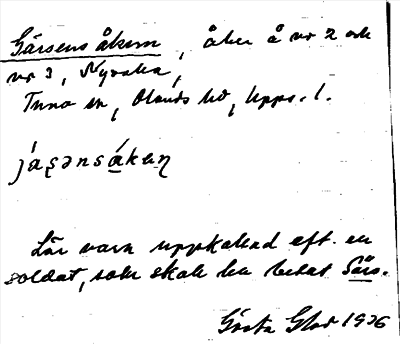 Gärsens åkern, åker å nr 2 och
nr 3, Nyvalla,
Tuna sn, Olands hd, Upps. l.
jásənsákəɳ
Lär vara uppkallad eft. en
soldat, som skall ha hetat Särs.
Gösta Glad 1936